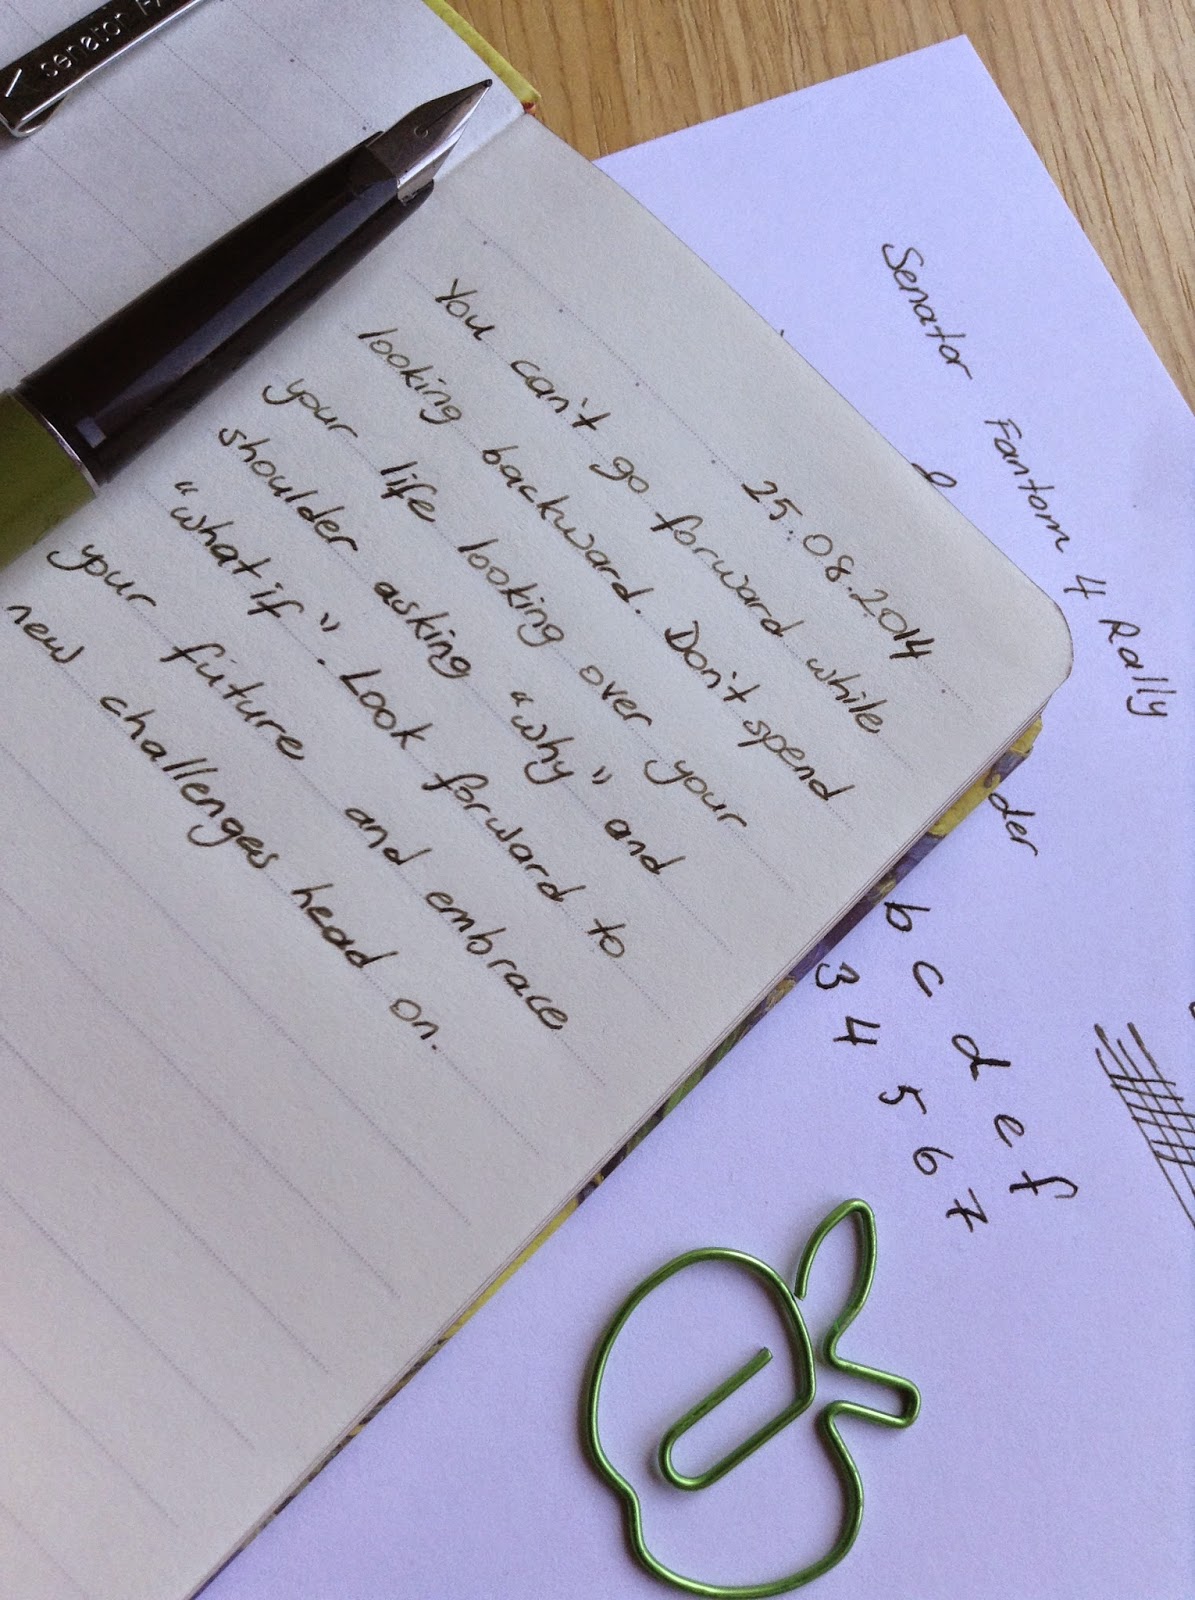 senator
25.08.2014
You can't go forward while
looking backward. Don't spend
your life looking over your
shoulder asking "why" and
"what if". Look forward to
your future and embrace
new challenges head on.
Senator Fantom 4 Rally
der
b c d e f
3 4 5 6 7